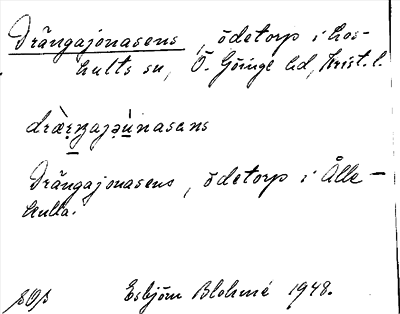 Drängajonasens, ödetorp i Los-
hults sn, Ö. Göinge hd, Krist. l.
dræ̀ŋajə̀únasans
Drängajonasens, ödetorp i Ålle-
kulla.
Esbjörn Blohmé 1948.